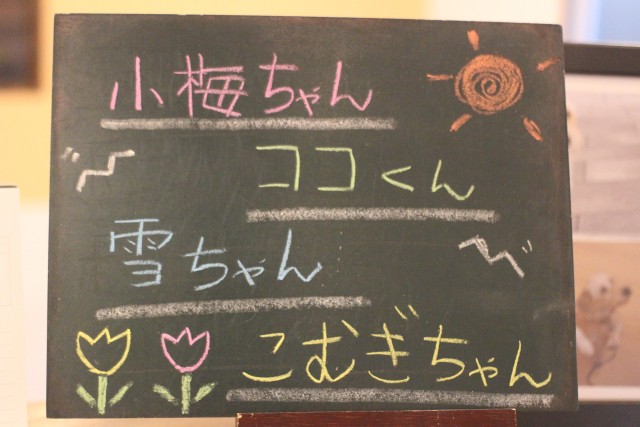 小梅ちゃん
ココくん
雪ちゃん
こむぎちゃん